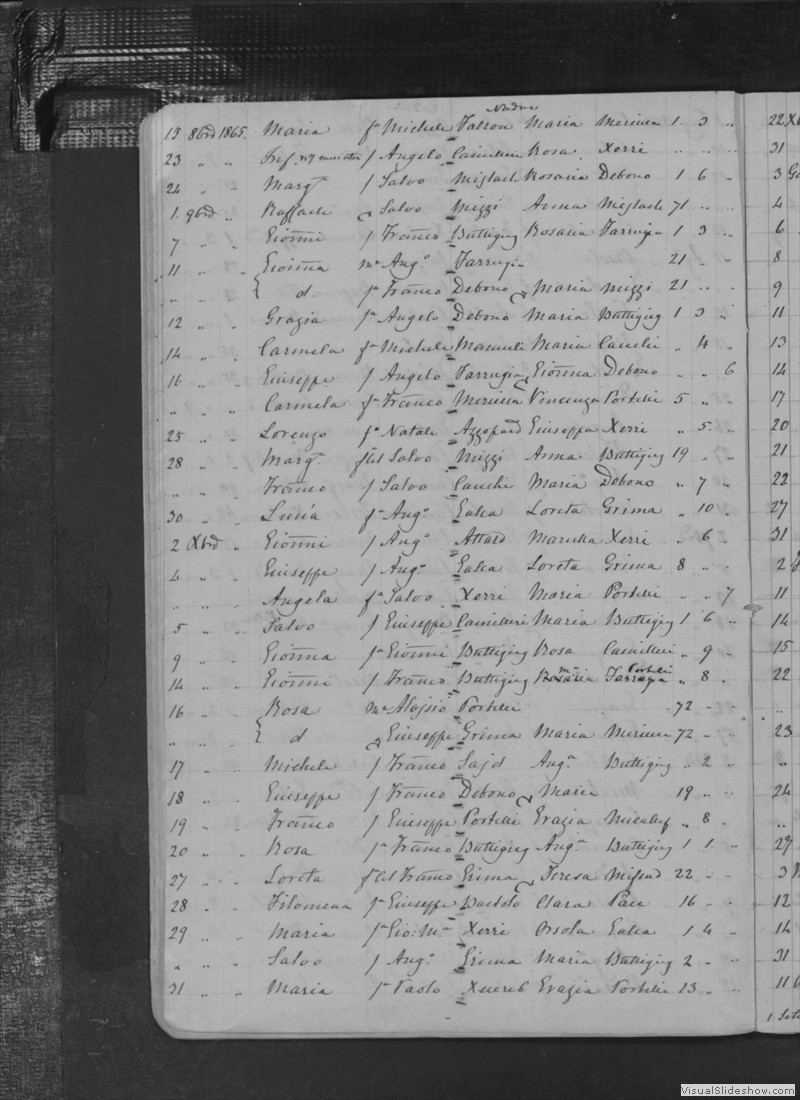 Nadur
15 8brē 1865. Maria fa Michele Vatron Maria Merieca 1 3 "
23 " " f Angelo Camilleri Rosa Xerri " " "
24 " " Marga f Salvo Mizlach Rosaria Debono 1 6 "
1. 9brē " Raffaele Salvo Mizzi Anna Mizlach 71 " "
7 " " Giōnni f Franco Buttigieg Rosaria Farrugia 1 3 "
11 " " Giōnna me Ango Farrugia 21 " "
" " " { d. fa Franco Debono Maria Mizzi 21 " "
12 " " Grazia fa Angelo Debono Maria Buttigieg 1 3 "
14 " " Carmela fa Michele Mamuli Maria Cauchi " 4 "
16 " " Giuseppe f Angelo Farrugia Giōnna Debono " " 6
" " " Carmela fa Franco Merieca Vincenza Portelli 5 " "
25 " " Lorenzo fo Natale Azzopard Giuseppa Xerri " 5 "
28 " " Marga Salvo Mizzi Anna Buttigieg 19 " "
" " " Franco f Salvo Cauchi Maria Debono " 7 "
30 " " Lucia fa Ango Galea Loreta Grima " 10 "
2 Xbrē " Giōnni f Ango Attard Marulla Xerri " 6 "
4 " " Giuseppe f Ango Galea Loreta Grima 8 " "
" " " Angela fa Salvo Xerri Maria Portelli " " 7
5 " " Salvo f Giuseppe Camilleri Maria Buttigieg 1 6 "
9 " " Giōnna fa Giōnni Buttigieg Rosa Camilleri " 9 "
14 " " Giōnni f Franco Buttigieg Rosaria Farrugia Portelli " 8 "
16 " " Rosa me Aloisio Portelli 72 " "
" " " { d Giuseppe Grima Maria Merieca 72 " "
17 " " Michele f Franco Sajd Anga Buttigieg " 2 "
18 " " Giuseppe f Franco Debono Maria 19 " "
19 " " Franco f Giuseppe Portelli Grazia Micallef " 8 "
20 " " Rosa fa Franco Buttigieg Anga Buttigieg 1 1 "
27 " " Loreta Franco Grima Teresa Mifsud 22 " "
28 " " Filomena fa Giuseppe Bartolo Clara Pace 16 " "
29 " " Maria fa Gio: Ma Xerri Orsola Galea 1 4 "
" " " Salvo f Ango Grima Maria Buttigieg 2 " "
31 " " Maria fa Paolo Xuereb Grazia Portelli 23 " "
22 X
31
3
4
6
8
9
11
13
14
17
20
21
22
27
31
2
11
14
15
22
"
23
"
24
"
27
3
12
14
31
11
1
VisualSlideshow.com